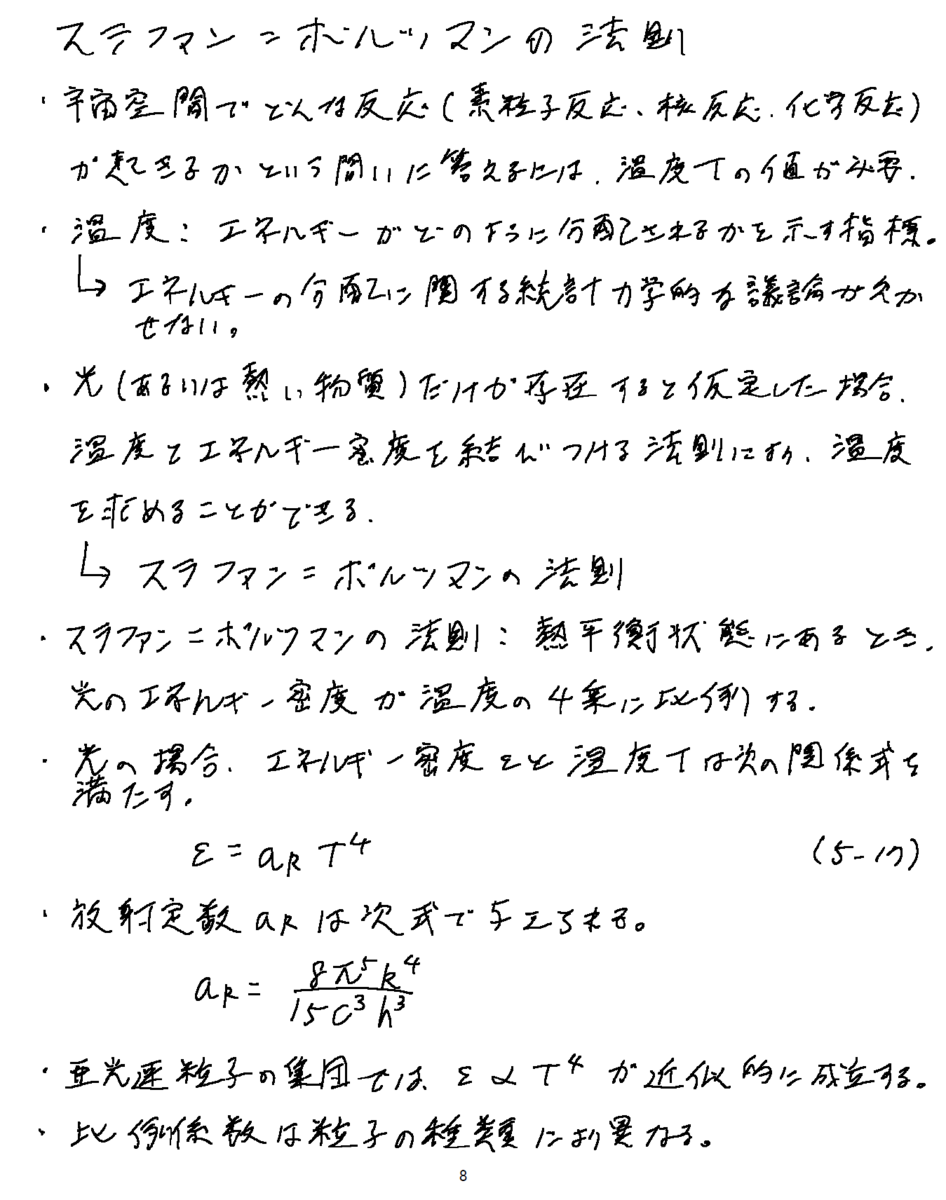 ステファン=ボルツマンの法則
・宇宙空間でどんな反応(素粒子反応、核反応、化学反応)
が起きるかという問いに答えるには、温度Tの値が必要.
・温度:エネルギーがどのように分配されるかを示す指標。
↳ エネルギーの分配に関する統計力学的な議論が欠か
せない。
・光(あるいは熱い物質)だけが存在すると仮定した場合、
温度とエネルギー密度を結びつける法則により、温度
を求めることができる.
↳ ステファン=ボルツマンの法則
・ステファン=ボルツマンの法則:熱平衡状態にあるとき、
光のエネルギー密度が温度の4乗に比例する.
・光の場合、エネルギー密度εと温度Tは次の関係式を
満たす。
ε = a_R T⁴ (5-17)
・放射定数 a_R は次式で与えられる。
a_R = 8π⁵k⁴ / 15c³h³
・亜光速粒子の集団では、ε ∝ T⁴ が近似的に成立する。
・比例係数は粒子の種類により異なる。
8